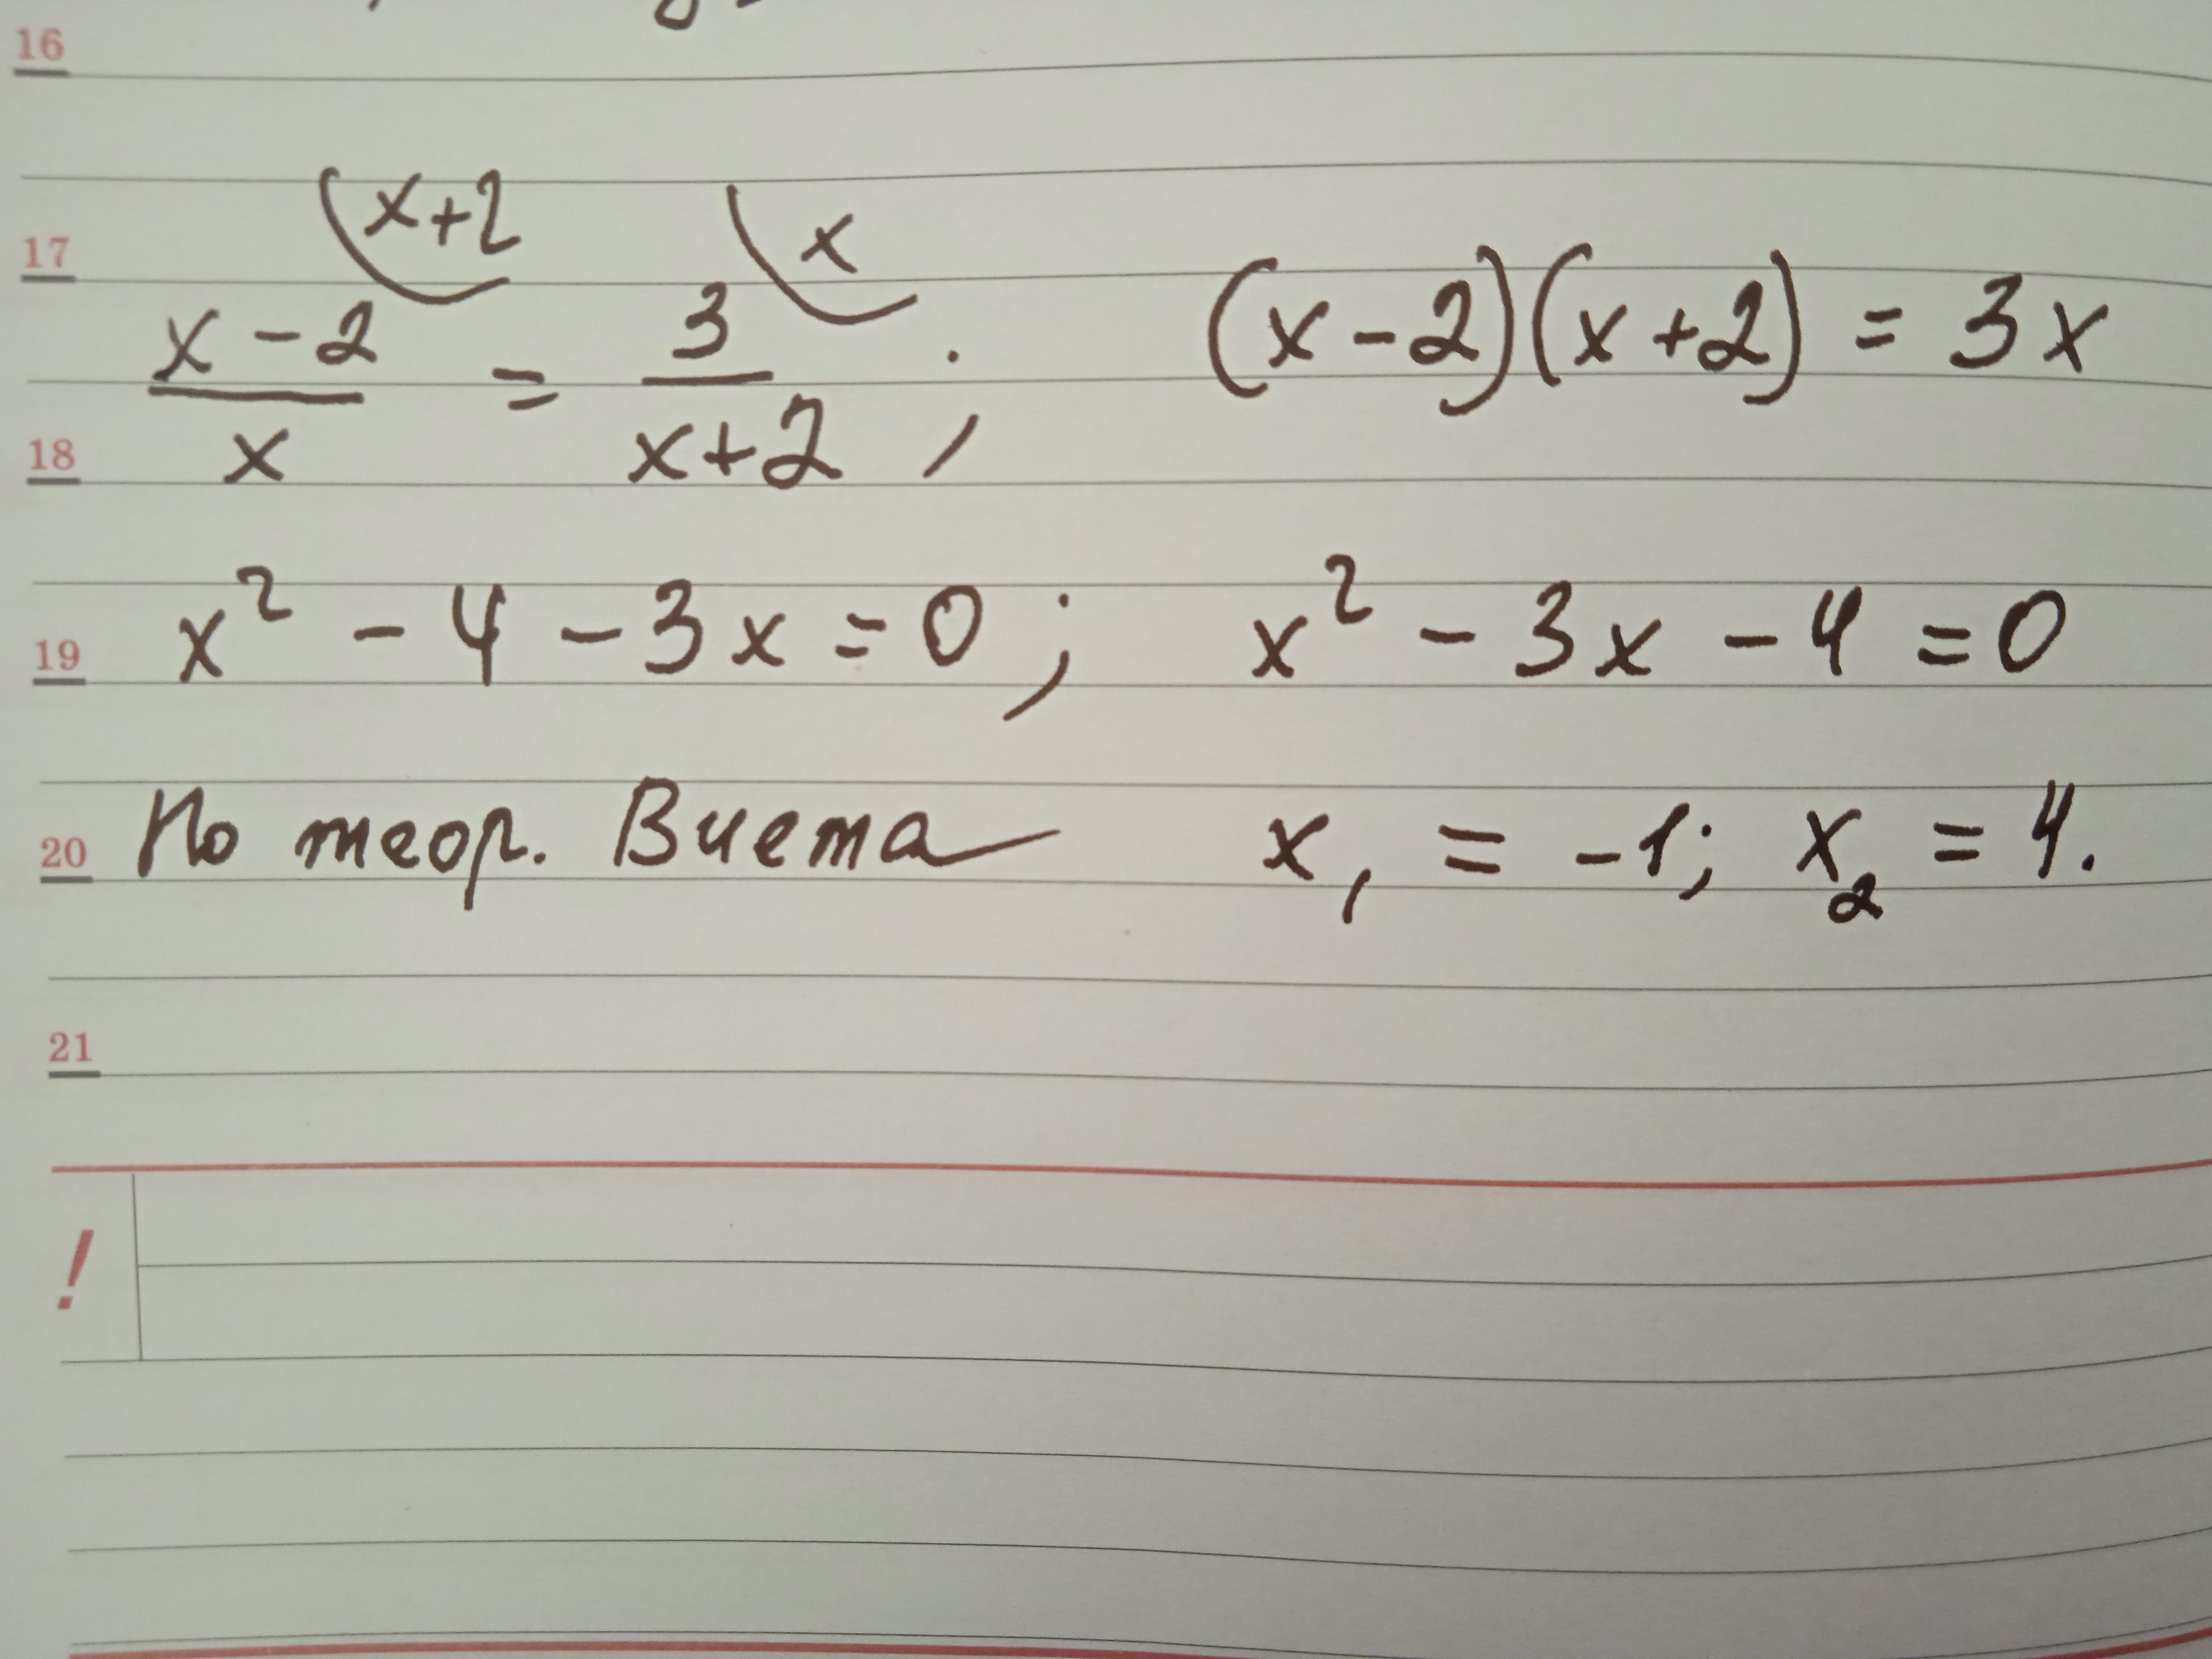 16
17
x+2 x
x - 2 / x = 3 / x+2 ; (x - 2)(x + 2) = 3x
18
19 x² - 4 - 3x = 0 ; x² - 3x - 4 = 0
20 По теор. Виета x₁ = -1; x₂ = 4.
21
!